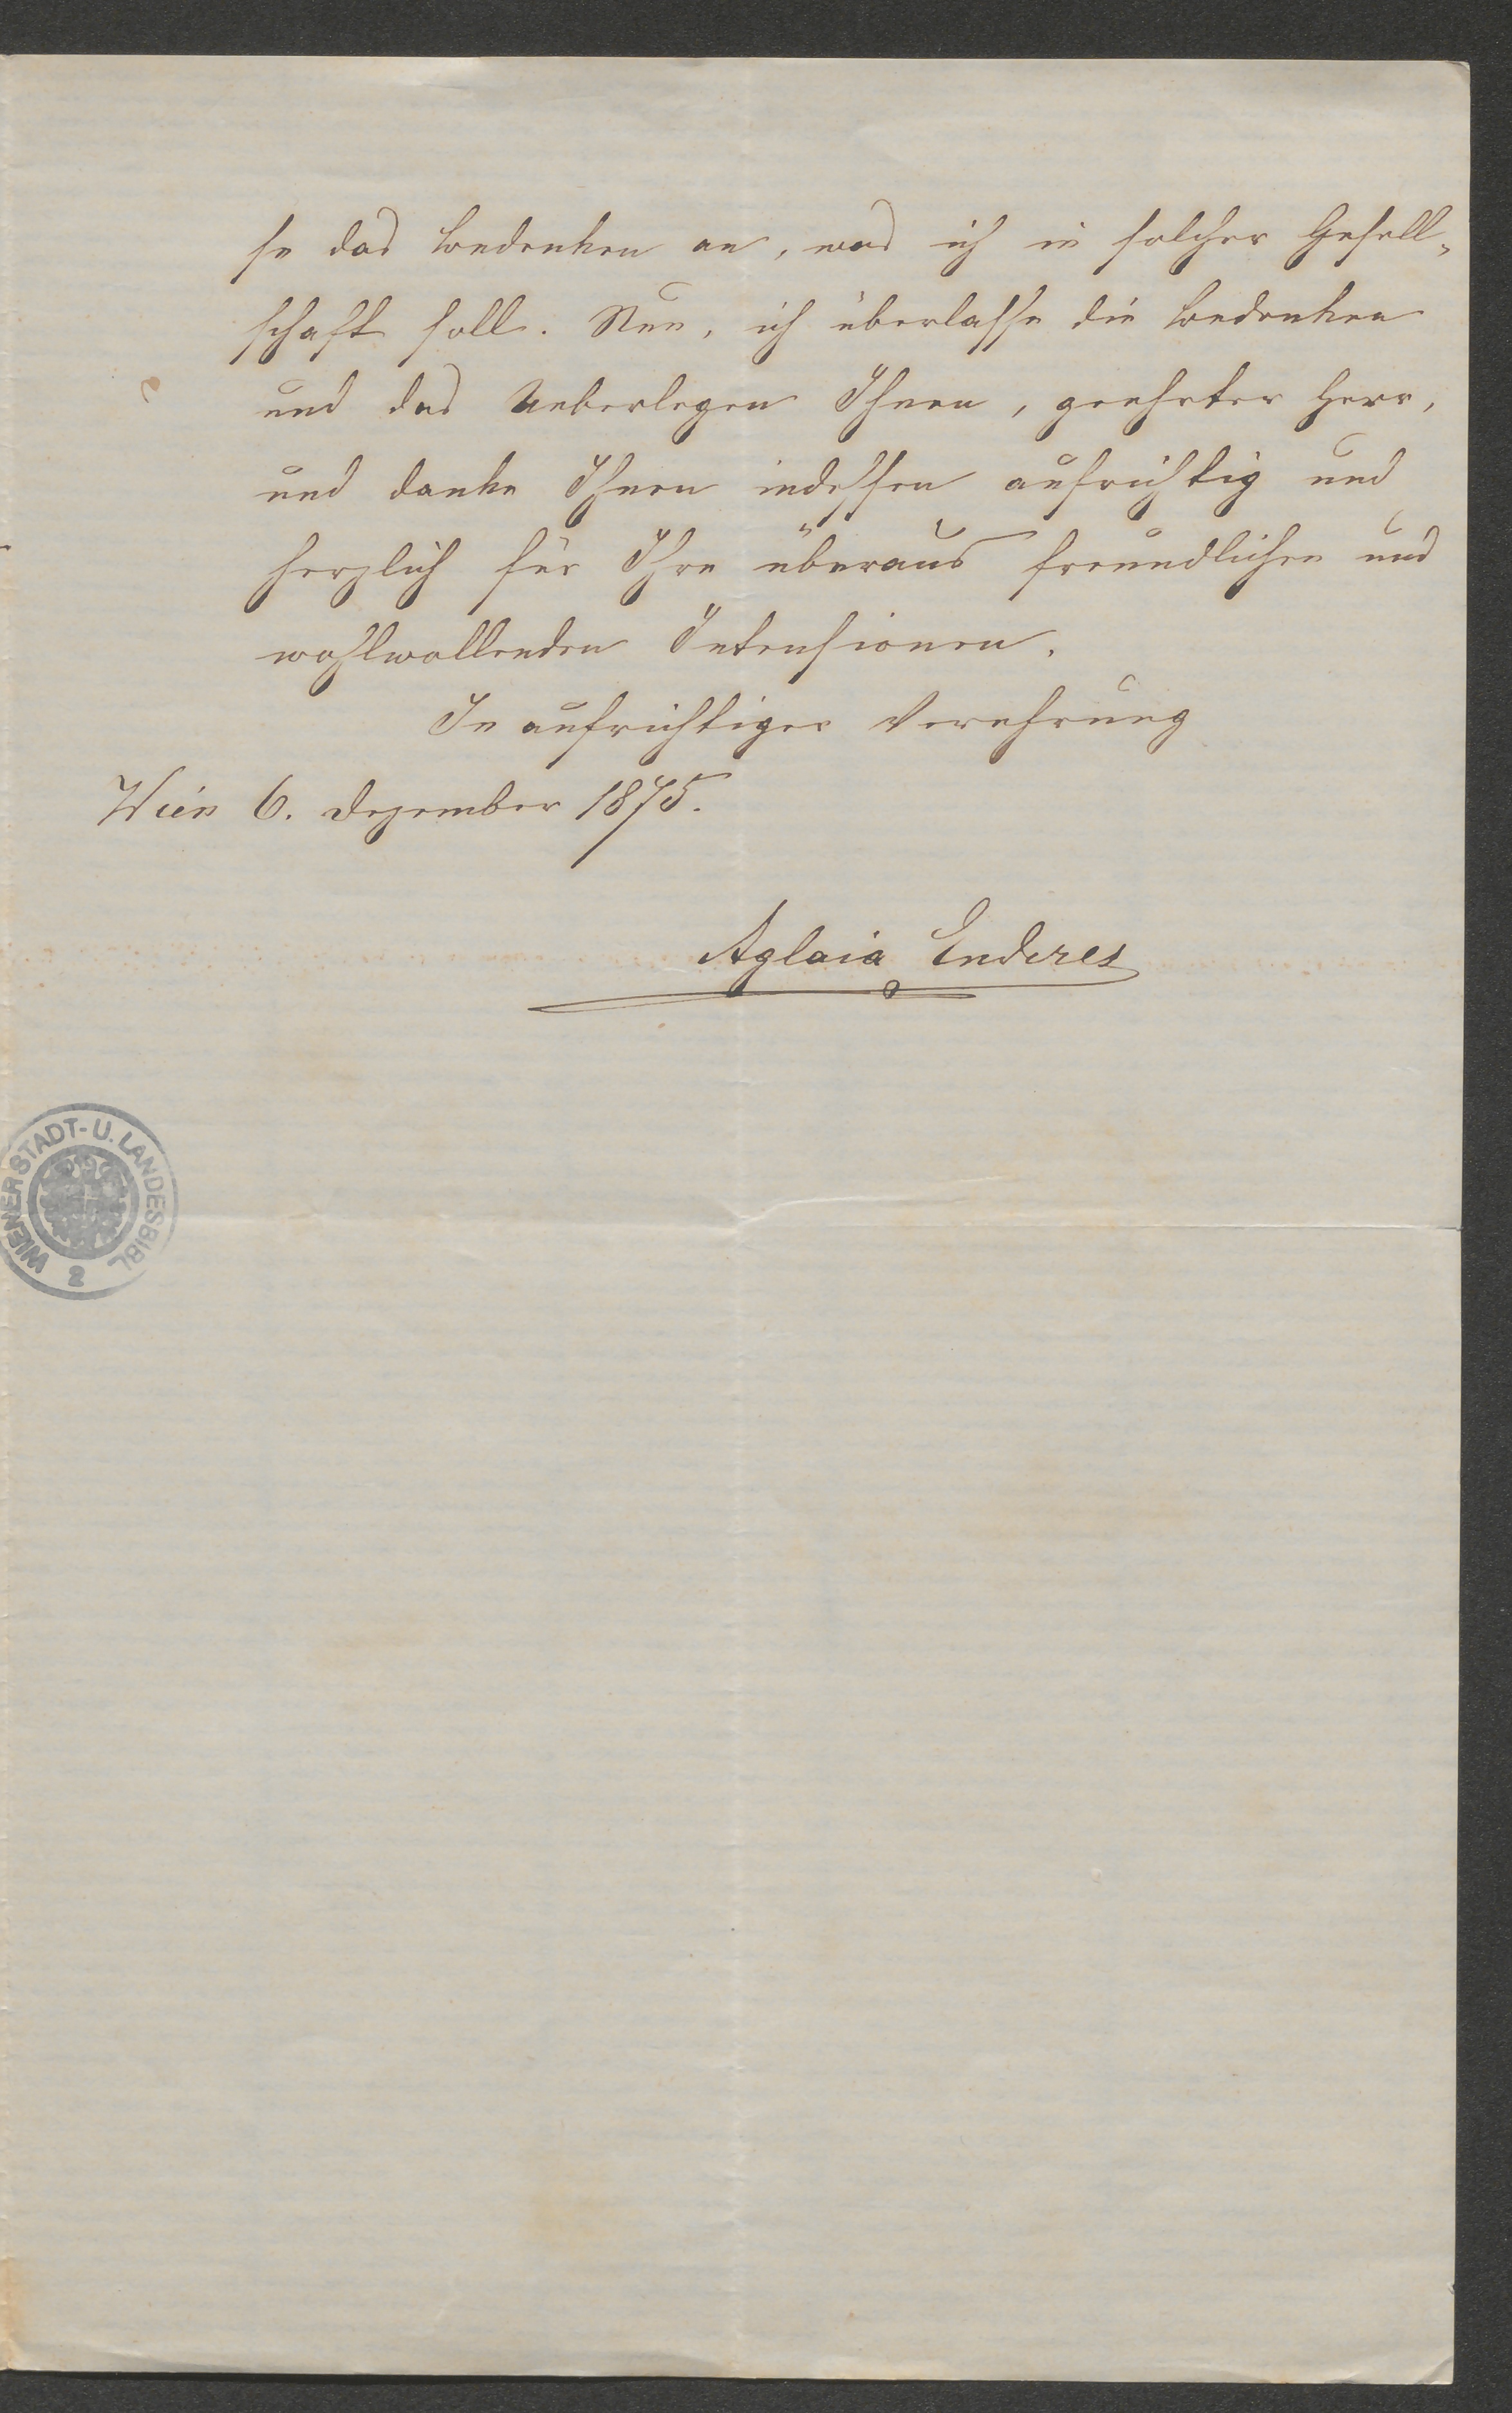 se das Bedenken an, was ich in solcher Gesell-
schaft soll. Nun, ich überlasse die Bedenken
und das Ueberlegen Ihnen, geehrter Herr,
und danke Ihnen indessen aufrichtig und
herzlich für Ihre überaus freundlichen und
wohlwollenden Intensionen.
In aufrichtiger Verehrung
Wien 6. Dezember 1875.
Aglaia Enderes
WIENER STADT- U. LANDESBIBL
2